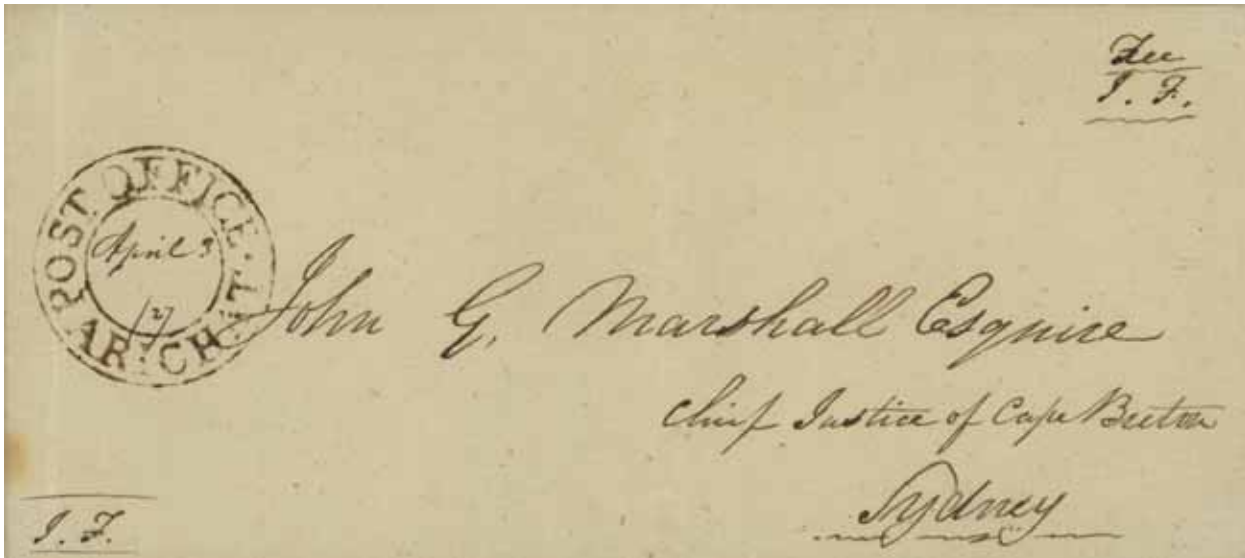 Free
J. F.
POST OFFICE
April 3
/27
AR:CH:T
John G. Marshall Esquire
Chief Justice of Cape Breton
Sydney
J. F.